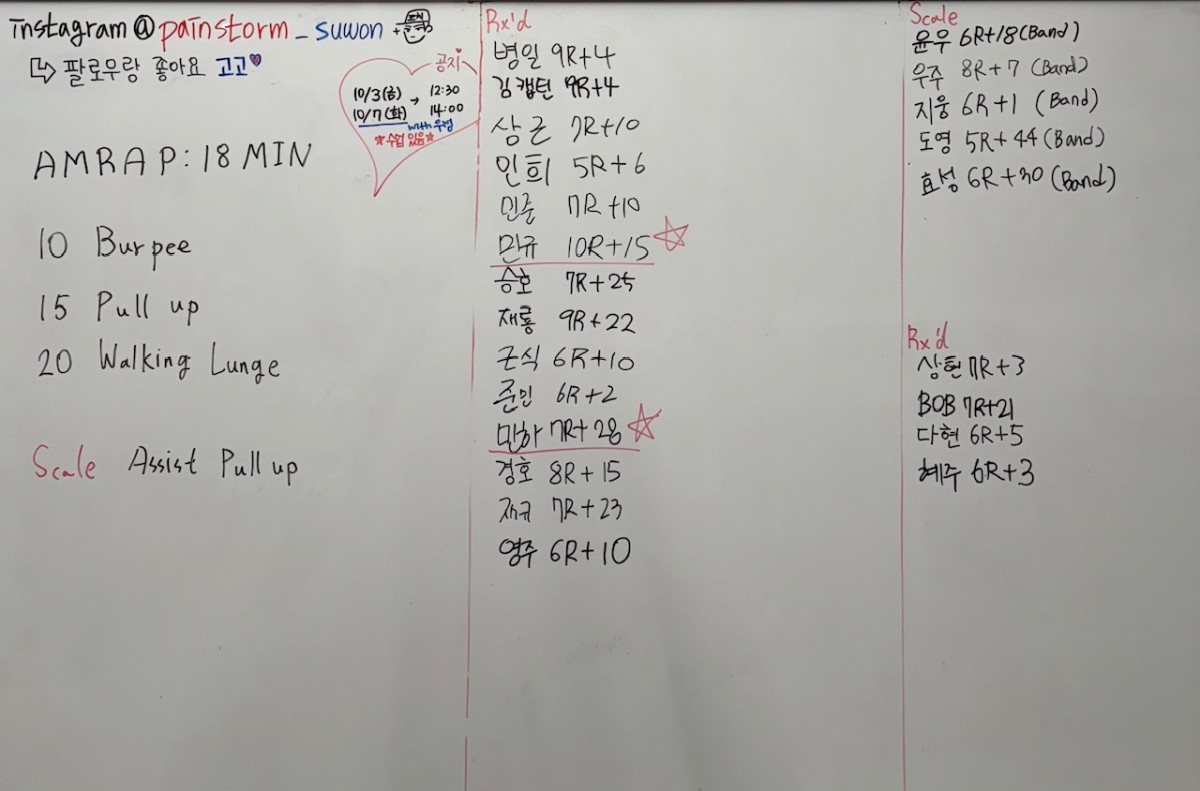 instagram @painstorm_suwon
팔로우랑 좋아요 고고
공지
10/3(금) → 12:30
10/7(화) 14:00
with 우경
☆수업 있음☆
AMRAP: 18 MIN
10 Burpee
15 Pull up
20 Walking Lunge
Scale Assist Pull up
Rx'd
병일 9R+4
김캡틴 9R+4
상근 7R+10
인희 5R+6
민준 7R+10
민규 10R+15
승호 7R+25
재룡 9R+22
근식 6R+10
준민 6R+2
민하 7R+28
경호 8R+15
재규 7R+23
영주 6R+10
Scale
윤우 6R+18(Band)
우주 8R+7 (Band)
지웅 6R+1 (Band)
도영 5R+44(Band)
효성 6R+30(Band)
Rx'd
상현 7R+3
BOB 7R+21
다현 6R+5
혜주 6R+3